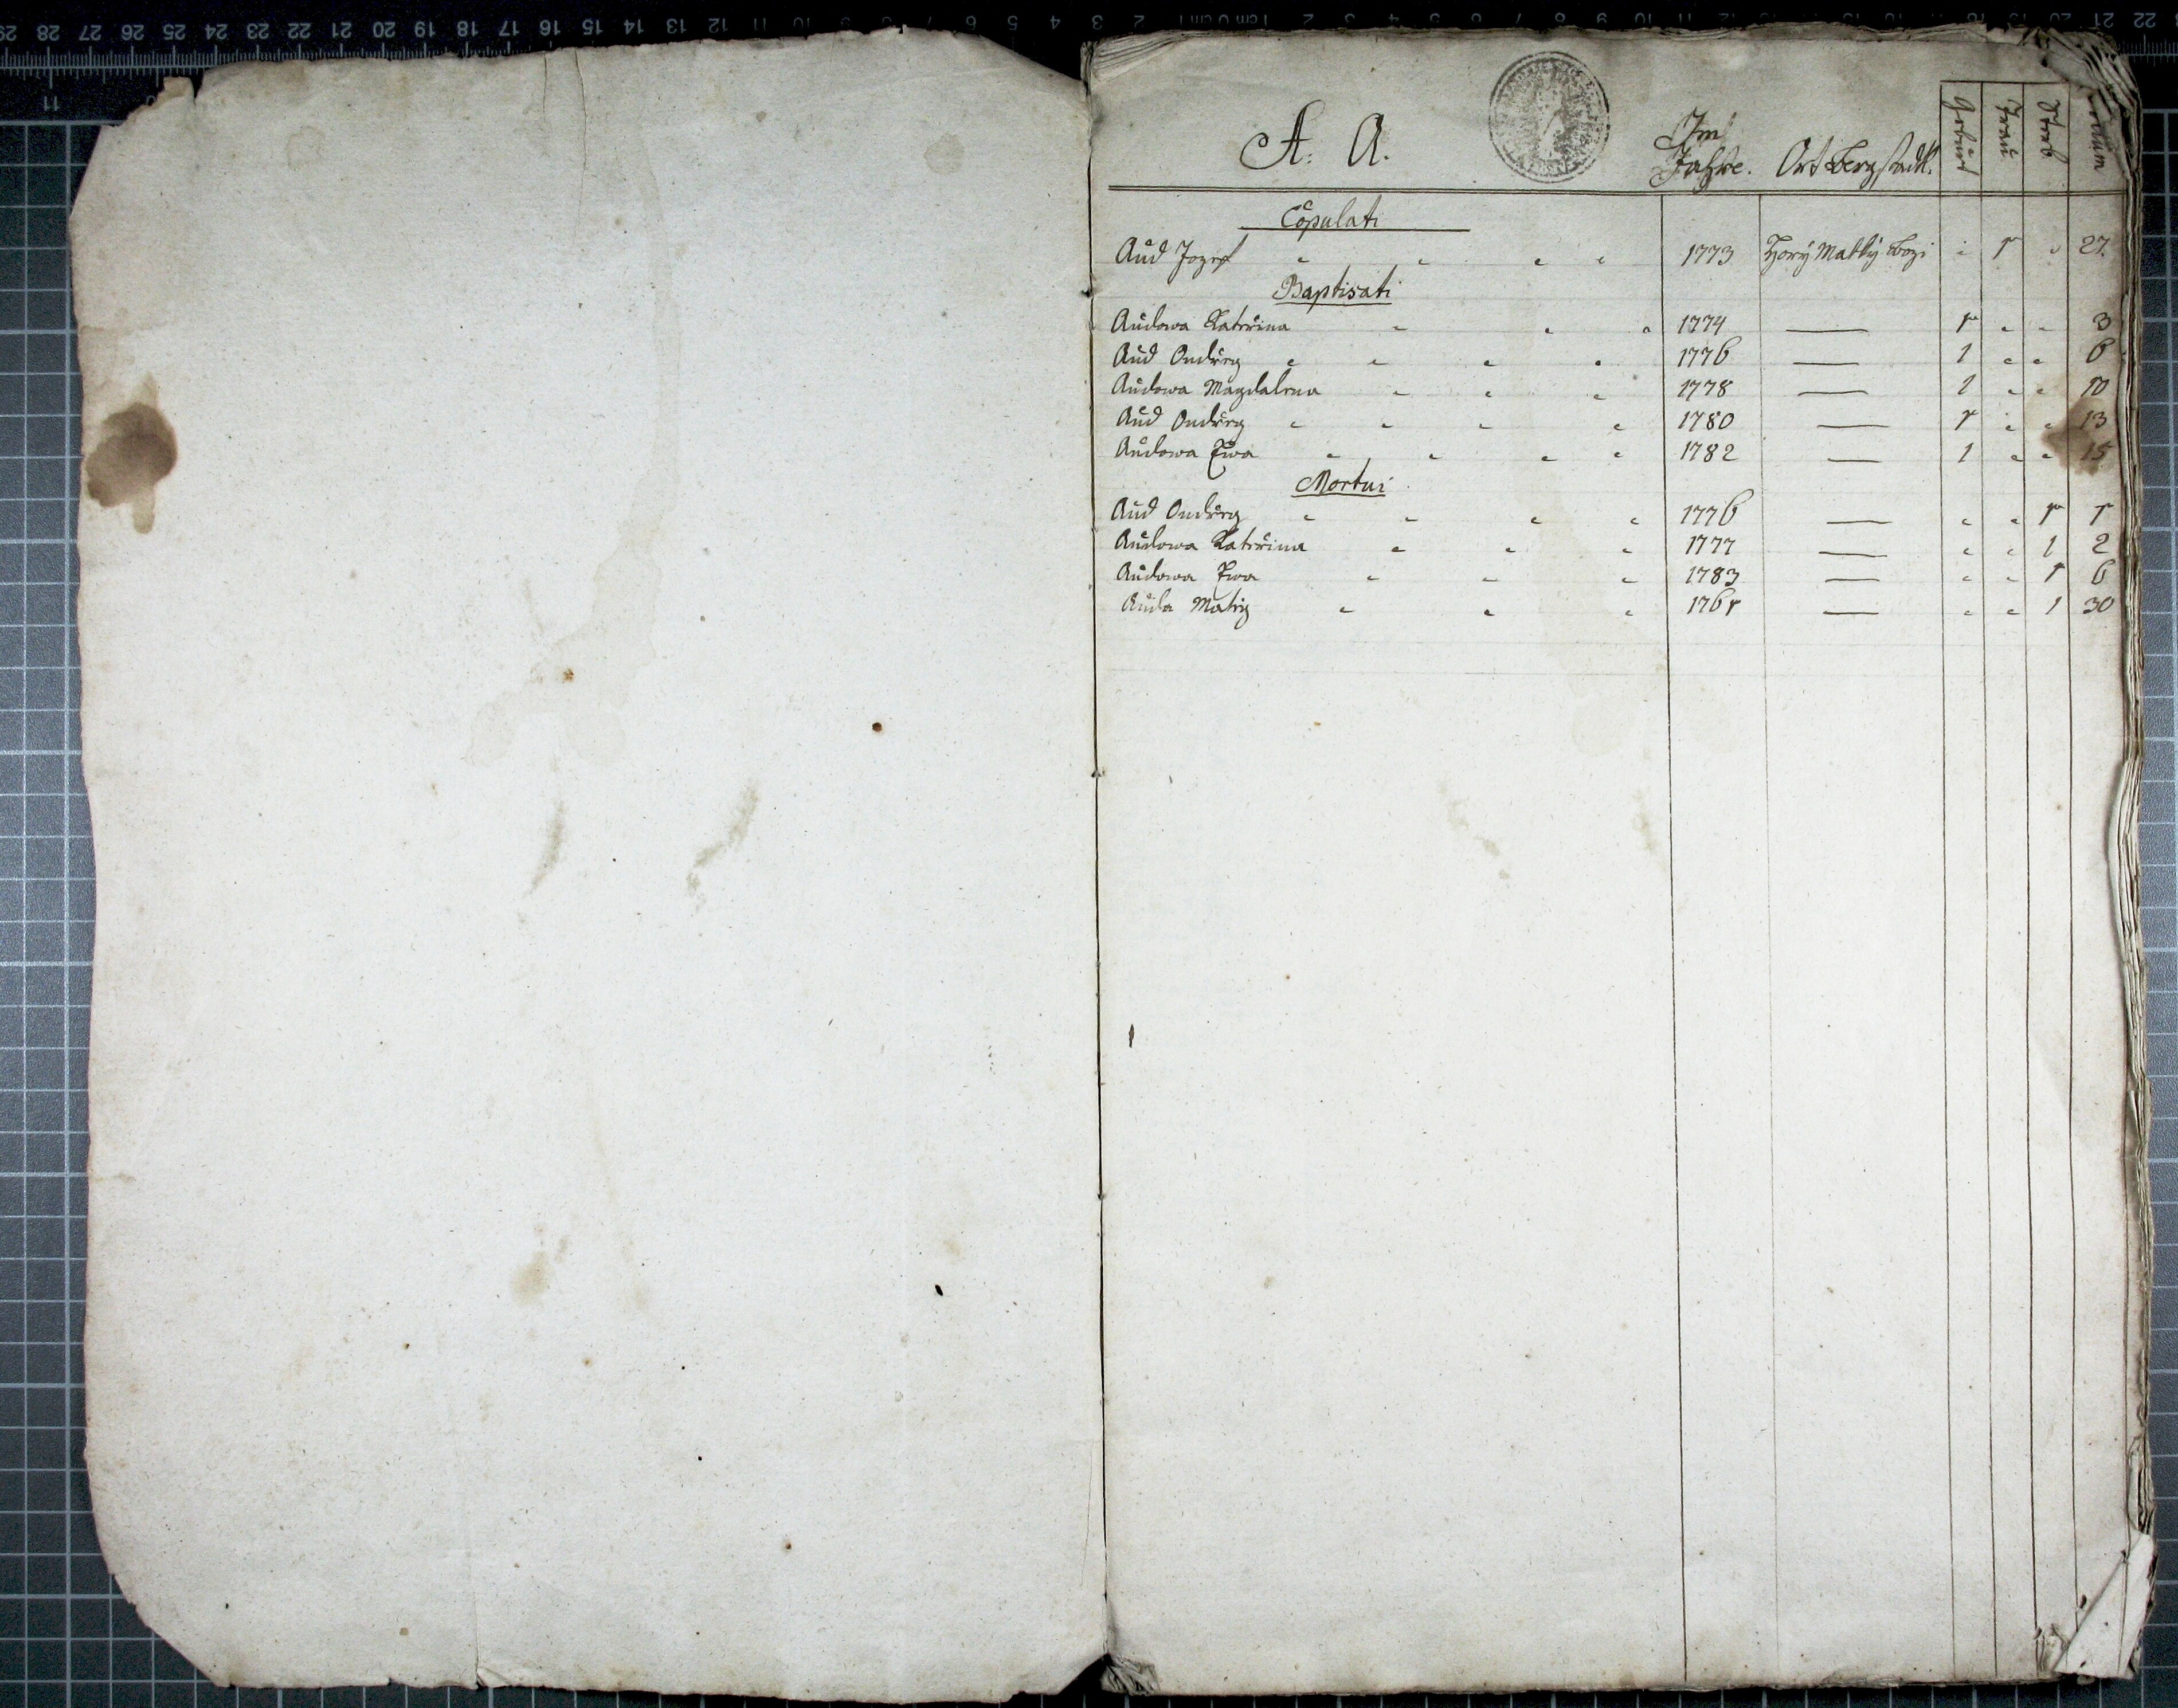 A: A.
Im
Jahre. Ort Bergstadtl. Geburt Trau Sterb Folium
Copulati
Aud Jozef 1773 Hory Matky Bozi 1 27.
Baptisati
Audowa Katerina 1774 — 1 3
Aud Ondřeg 1776 — 1 6
Audowa Magdalena 1778 — 1 10
Aud Ondřeg 1780 — 1 13
Audowa Ewa 1782 — 1 15
Mortui
Aud Ondřeg 1776 — 1 1
Audowa Katerina 1777 — 1 2
Audowa Ewa 1783 — 1 6
Auda Matěg 1761 — 1 30